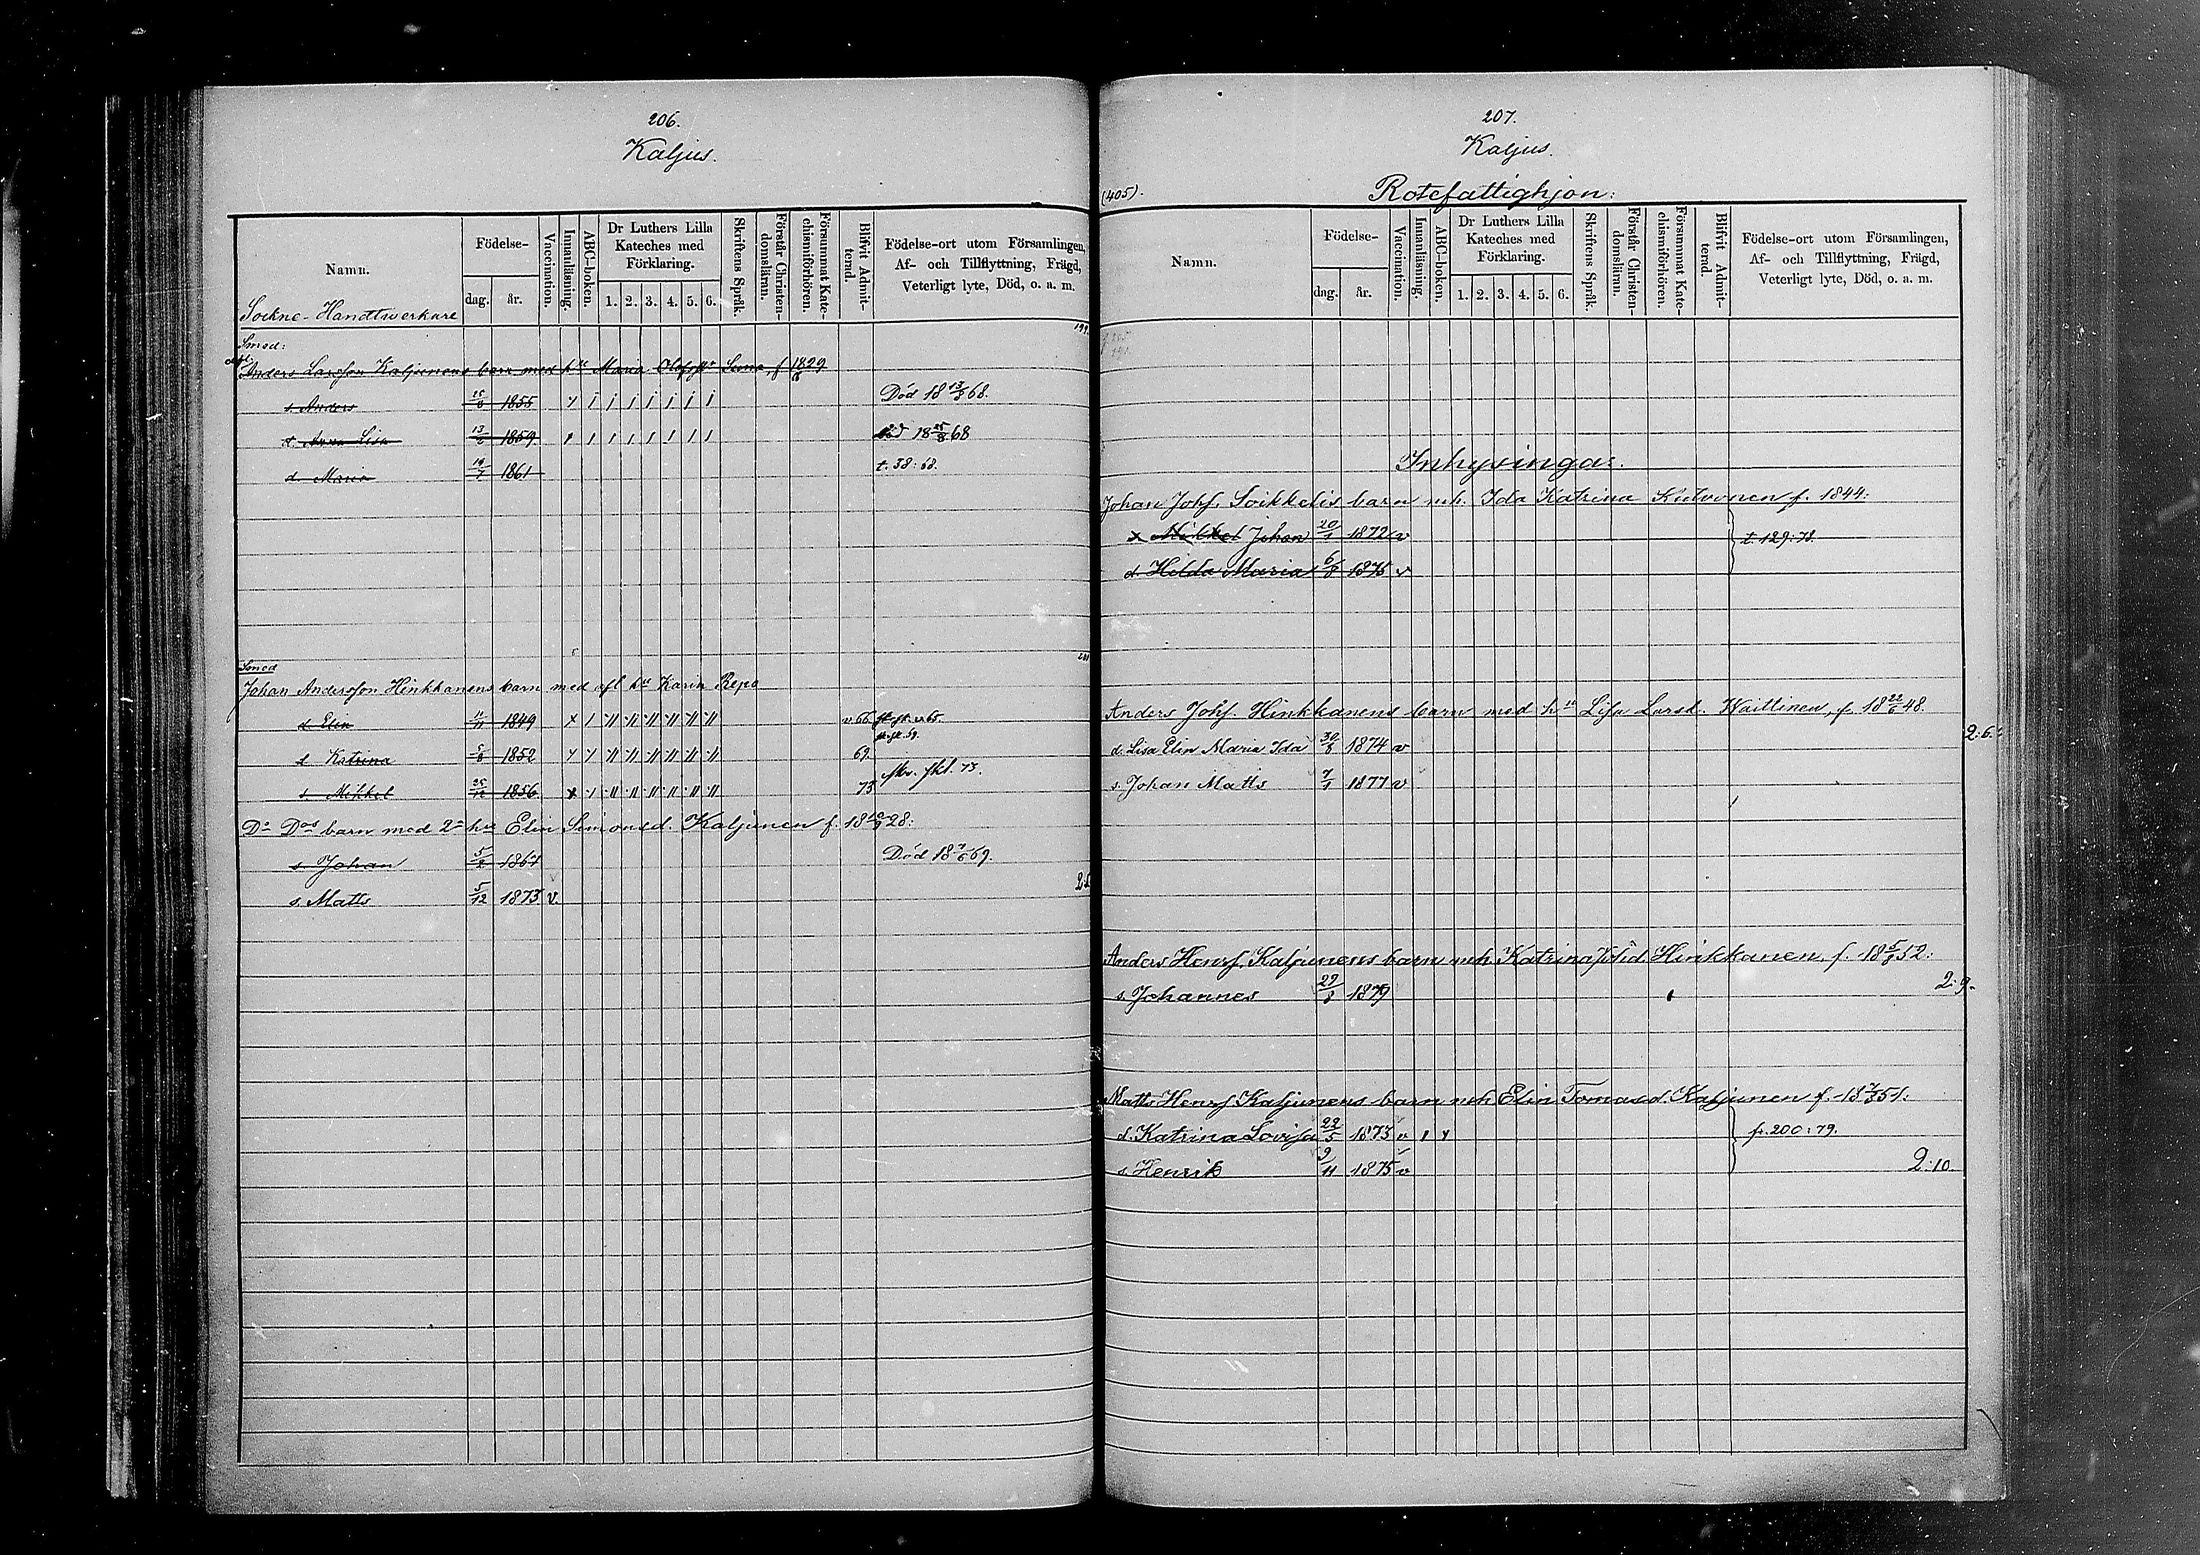 206.
Kaljus.
Namn.
Födelse-
dag.
år.
Vaccination.
Innanläsning.
ABC-boken.
Dr Luthers Lilla Kateches med Förklaring.
1. 2. 3. 4. 5. 6.
Skriftens Språk.
Förstår Christendomsläran.
Försummat Katechismiförhören.
Blifvit Admitterad.
Födelse-ort utom Församlingen, Af- och Tillflyttning, Frägd, Veterligt lyte, Död, o. a. m.
Sockne-Handtverkare
199.
Smed:
Anders Larsson Kaljunens barn med hu Maria Olofsdr f 1829
s. Anders 1855 Död 18 13/8 68.
d. Anna Lisa 13/2 1859 död 18 25/8 68
d. Maria 19/7 1861 t. 38: 68.
201
Smed
Johan Andersson Hinkkanens barn med afl hu Karin Repo
d. Elin 11/11 1849 v. 66.
d. Katrina 5/8 1852 69.
s. Mikkel 25/12 1856 73
Do Dos barn med 2a hu Elin Simonsd. Kaljunen f. 18 28:
s. Johan 5/2 1867 Död 18 69.
s. Matts 5/12 1873 v.
207.
Kaljus.
(405).
Rotefattighjon:
Namn.
Födelse-
dag.
år.
Vaccination.
Innanläsning.
ABC-boken.
Dr Luthers Lilla Kateches med Förklaring.
1. 2. 3. 4. 5. 6.
Skriftens Språk.
Förstår Christendomsläran.
Försummat Katechismiförhören.
Blifvit Admitterad.
Födelse-ort utom Församlingen, Af- och Tillflyttning, Frägd, Veterligt lyte, Död, o. a. m.
Inhysingar.
Johan Johs. Soikkelis barn mh. Ida Katrina Kutvonen f. 1844:
s. Mikkel Johan 20/1 1872 v t. 129: 78.
d. Hilda Maria 6/8 1875 v
Anders Johs. Hinkkanens barn med hu Lisa Larsd. Waittinen, f. 18 22/6 48.
2:6.
d. Lisa Elin Maria Ida 30/8 1874 v
s. Johan Matts 7/1 1877 v
Anders Henrs. Kaljunens barn mh Katrina Johsd. Hinkkanen, f. 18 5/8 52:
s. Johannes 29/8 1879 2:9.
Matts Henrs Kaljunens barn mh Elin Tomasd. Kaljunen f. 18 7/3 51:
d. Katrina Lovisa 22/5 1873 v fr. 200: 79.
s. Henrik 9/11 1875 v 2:10.